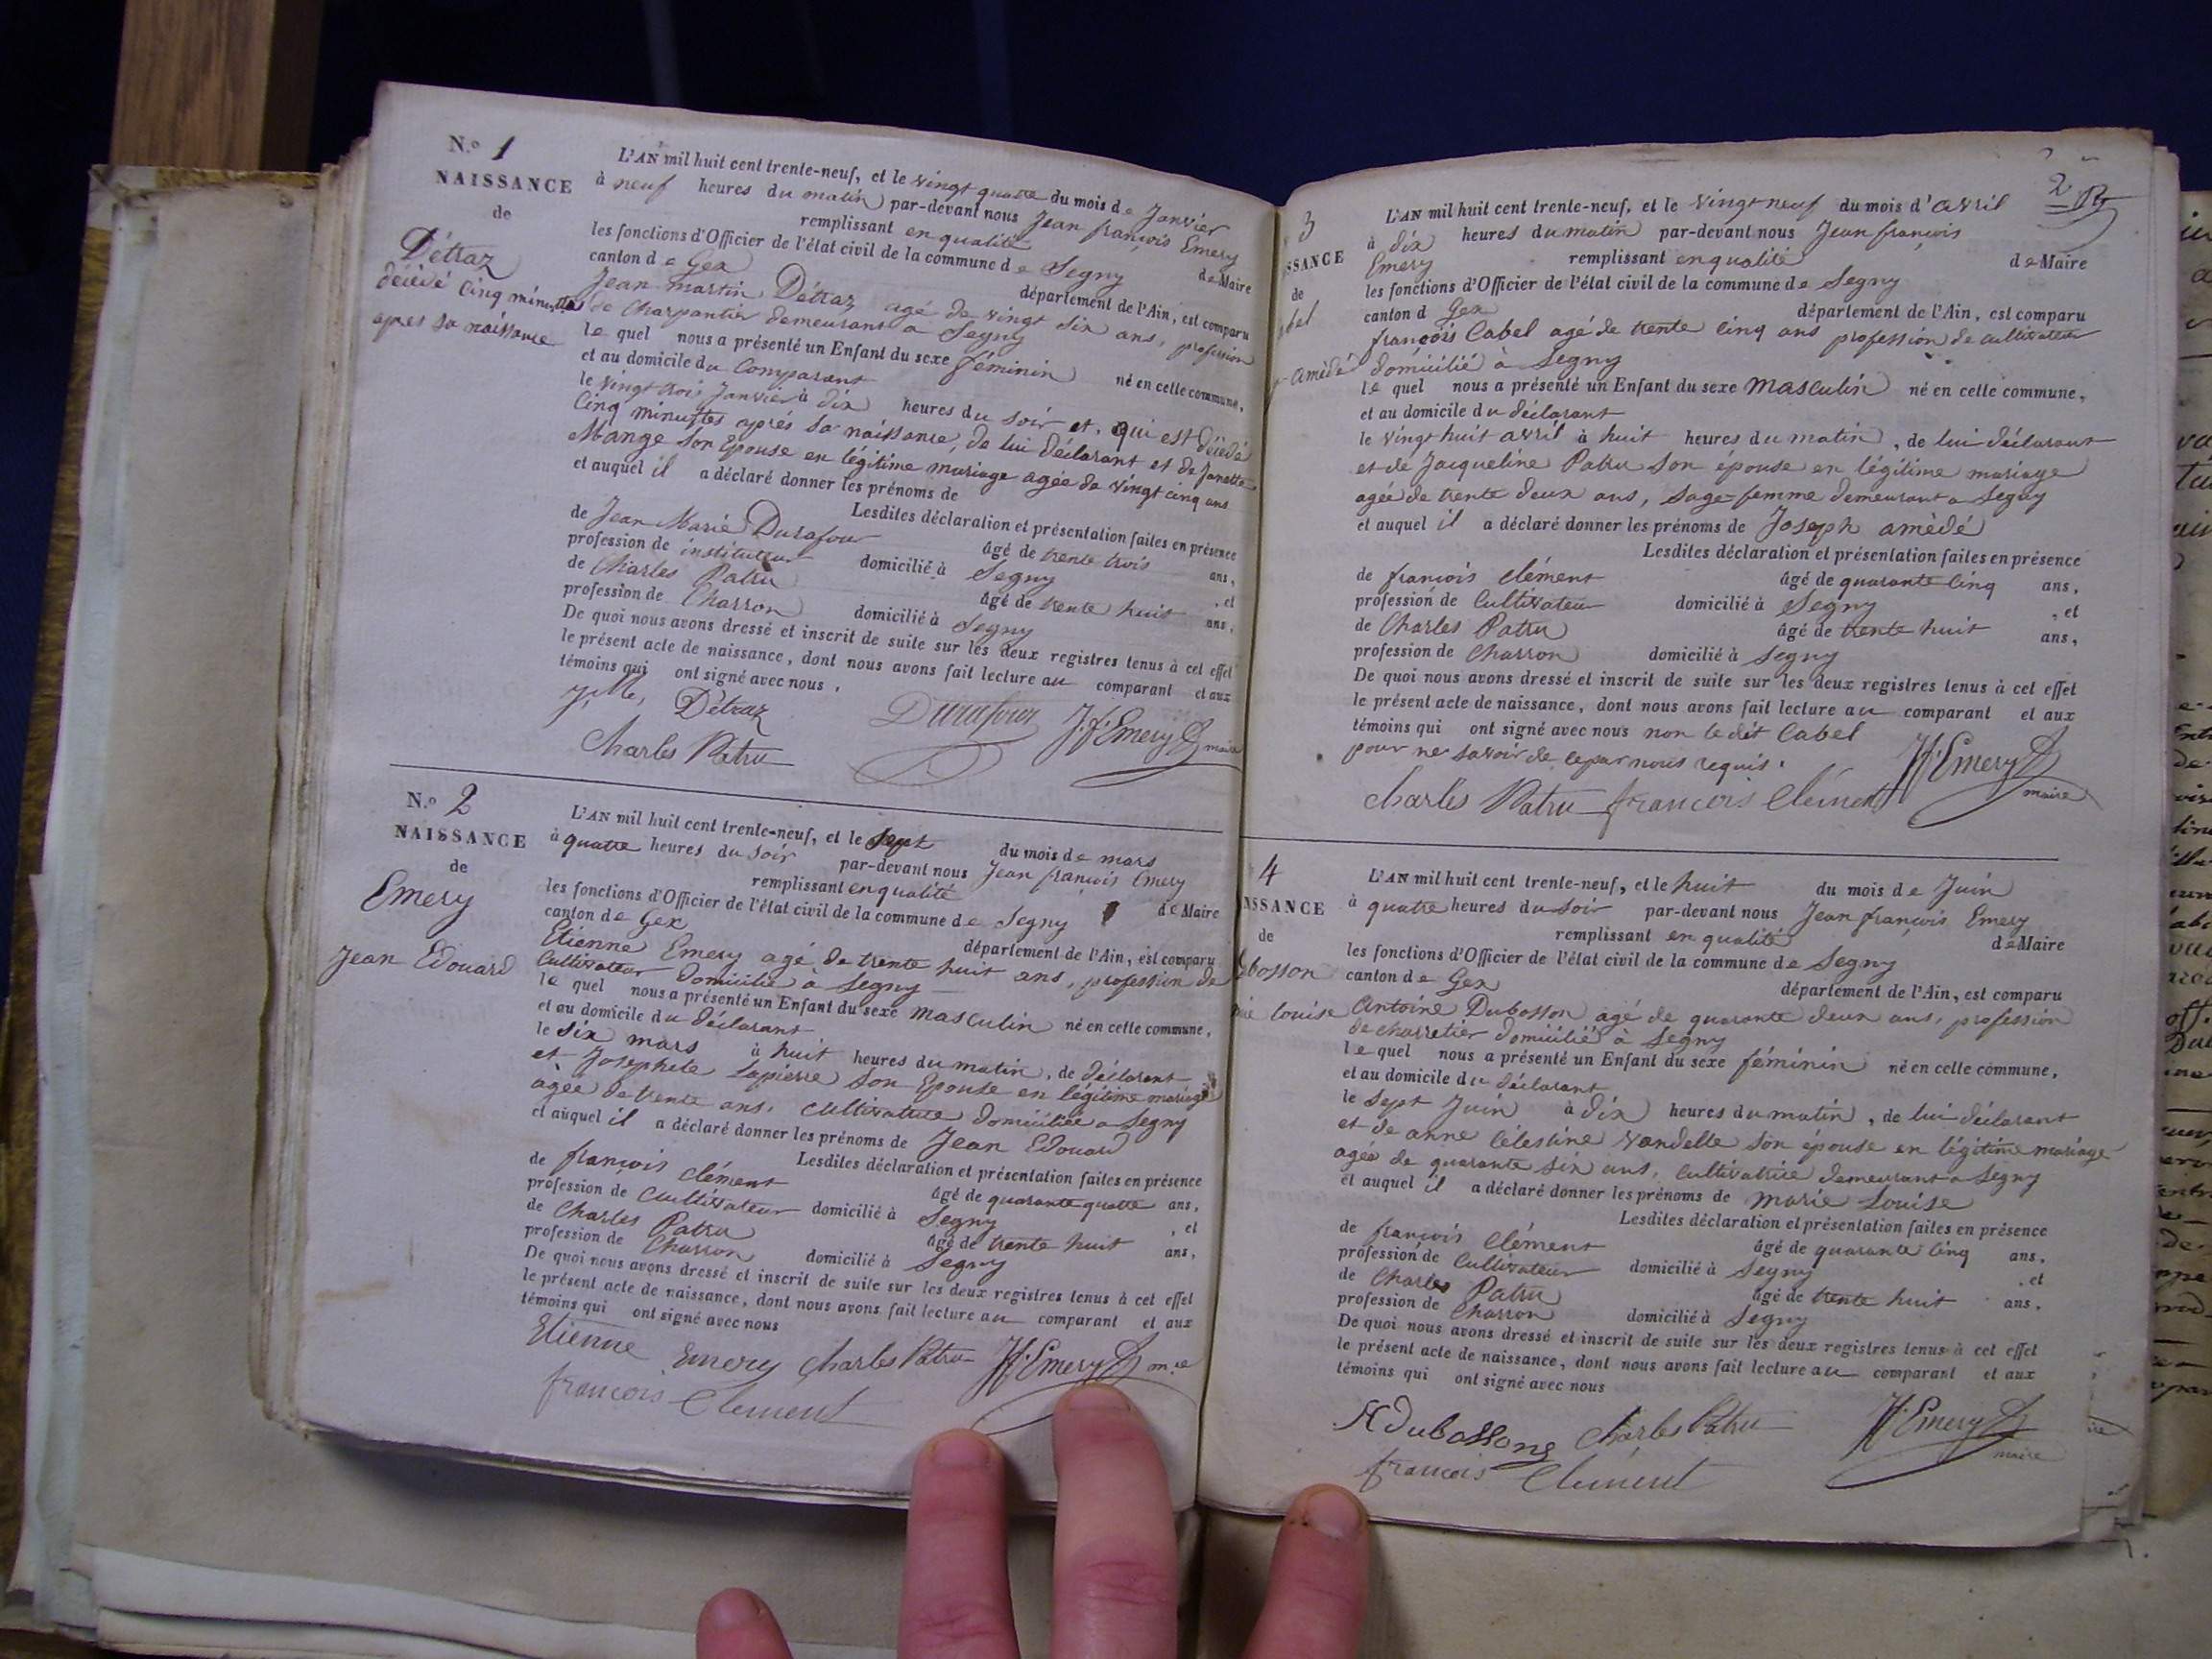 N.º 1
NAISSANCE
de
Détraz
décédé cinq minuttes
après sa naissance
L'AN mil huit cent trente-neuf, et le vingt quatre du mois de Janvier
à neuf heures du matin par-devant nous Jean françois Emery
remplissant en qualité de Maire
les fonctions d'Officier de l'état civil de la commune de Segny
canton de Gex département de l'Ain, est comparu
Jean martin Détraz agé de vingt six ans, profession
de Charpantier demeurant a Segny
le quel nous a présenté un Enfant du sexe féminin né en cette commune,
et au domicile du Comparant
le vingt trois Janvier à dix heures du soir et, qui est décédé
Cinq minuttes après sa naissance, de lui déclarant et de Janette
Mange son Epouse en légitime mariage agée de vingt cinq ans
et auquel il a déclaré donner les prénoms de
Lesdites déclaration et présentation faites en présence
de Jean Marie Durafour âgé de trente trois ans,
profession de instituteur domicilié à Segny , et
de Charles Patru âgé de trente huit ans,
profession de Charron domicilié à Segny
De quoi nous avons dressé et inscrit de suite sur les deux registres tenus à cet effet
le présent acte de naissance, dont nous avons fait lecture au comparant et aux
témoins qui ont signé avec nous,
Détraz Durafour J.f. Emery maire
Charles Patru
N.º 2
NAISSANCE
de
Emery
Jean Edouard
L'AN mil huit cent trente-neuf, et le Sept du mois de mars
à quatre heures du soir par-devant nous Jean françois Emery
remplissant en qualité de Maire
les fonctions d'Officier de l'état civil de la commune de Segny
canton de Gex département de l'Ain, est comparu
Etienne Emery agé de trente huit ans, profession de
Cultivateur Domicilié à Segny
le quel nous a présenté un Enfant du sexe masculin né en cette commune,
et au domicile du déclarant
le six mars à huit heures du matin, de déclarant
et Josephete Lapierre son Epouse en légitime mariage
agée de trente ans, cultivatrice domiciliée a Segny
et auquel il a déclaré donner les prénoms de Jean Edouard
Lesdites déclaration et présentation faites en présence
de françois clément âgé de quarante quatre ans,
profession de Cultivateur domicilié à Segny , et
de Charles Patru âgé de trente huit ans,
profession de Charron domicilié à Segny
De quoi nous avons dressé et inscrit de suite sur les deux registres tenus à cet effet
le présent acte de naissance, dont nous avons fait lecture au comparant et aux
témoins qui ont signé avec nous
Etienne Emery Charles Patru Jf. Emery m.re
francois Clement
2
3
SSANCE
de
abel
amédé
L'AN mil huit cent trente-neuf, et le vingt neuf du mois d'avril
à dix heures du matin par-devant nous Jean françois
Emery remplissant en qualité de Maire
les fonctions d'Officier de l'état civil de la commune de Segny
canton d Gex département de l'Ain, est comparu
françois Cabel agé de trente cinq ans profession de cultivateur
domicilié à Segny
le quel nous a présenté un Enfant du sexe masculin né en cette commune,
et au domicile du déclarant
le vingt huit avril à huit heures du matin, de lui déclarant
et de Jacqueline Patru son épouse en légitime mariage
agée de trente deux ans, sage-femme demeurant a Segny
et auquel il a déclaré donner les prénoms de Joseph amèdé
Lesdites déclaration et présentation faites en présence
de françois clément âgé de quarante cinq ans,
profession de Cultivateur domicilié à Segny , et
de Charles Patru âgé de trente huit ans,
profession de Charron domicilié à Segny
De quoi nous avons dressé et inscrit de suite sur les deux registres tenus à cet effet
le présent acte de naissance, dont nous avons fait lecture au comparant et aux
témoins qui ont signé avec nous non le dit Cabel
pour ne savoir de ce par nous requis.
Charles Patru francois Clément Jf. Emery maire
4
NSSANCE
de
bosson
rie louise
L'AN mil huit cent trente-neuf, et le huit du mois de Juin
à quatre heures du soir par-devant nous Jean françois Emery
remplissant en qualité de Maire
les fonctions d'Officier de l'état civil de la commune de Segny
canton de Gex département de l'Ain, est comparu
Antoine Dubosson agé de quarante deux ans, profession
de charretier domicilié à Segny
le quel nous a présenté un Enfant du sexe féminin né en cette commune,
et au domicile du déclarant
le sept Juin à dix heures du matin, de lui déclarant
et de anne Célestine Vandelle son épouse en légitime mariage
agée de quarante six ans, cultivatrice demeurant a Segny
et auquel il a déclaré donner les prénoms de marie Louise
Lesdites déclaration et présentation faites en présence
de françois clément âgé de quarante cinq ans,
profession de Cultivateur domicilié à Segny , et
de Charles Patru âgé de trente huit ans,
profession de Charron domicilié à Segny
De quoi nous avons dressé et inscrit de suite sur les deux registres tenus à cet effet
le présent acte de naissance, dont nous avons fait lecture au comparant et aux
témoins qui ont signé avec nous
Charles Patru Jf. Emery maire
francois Clement